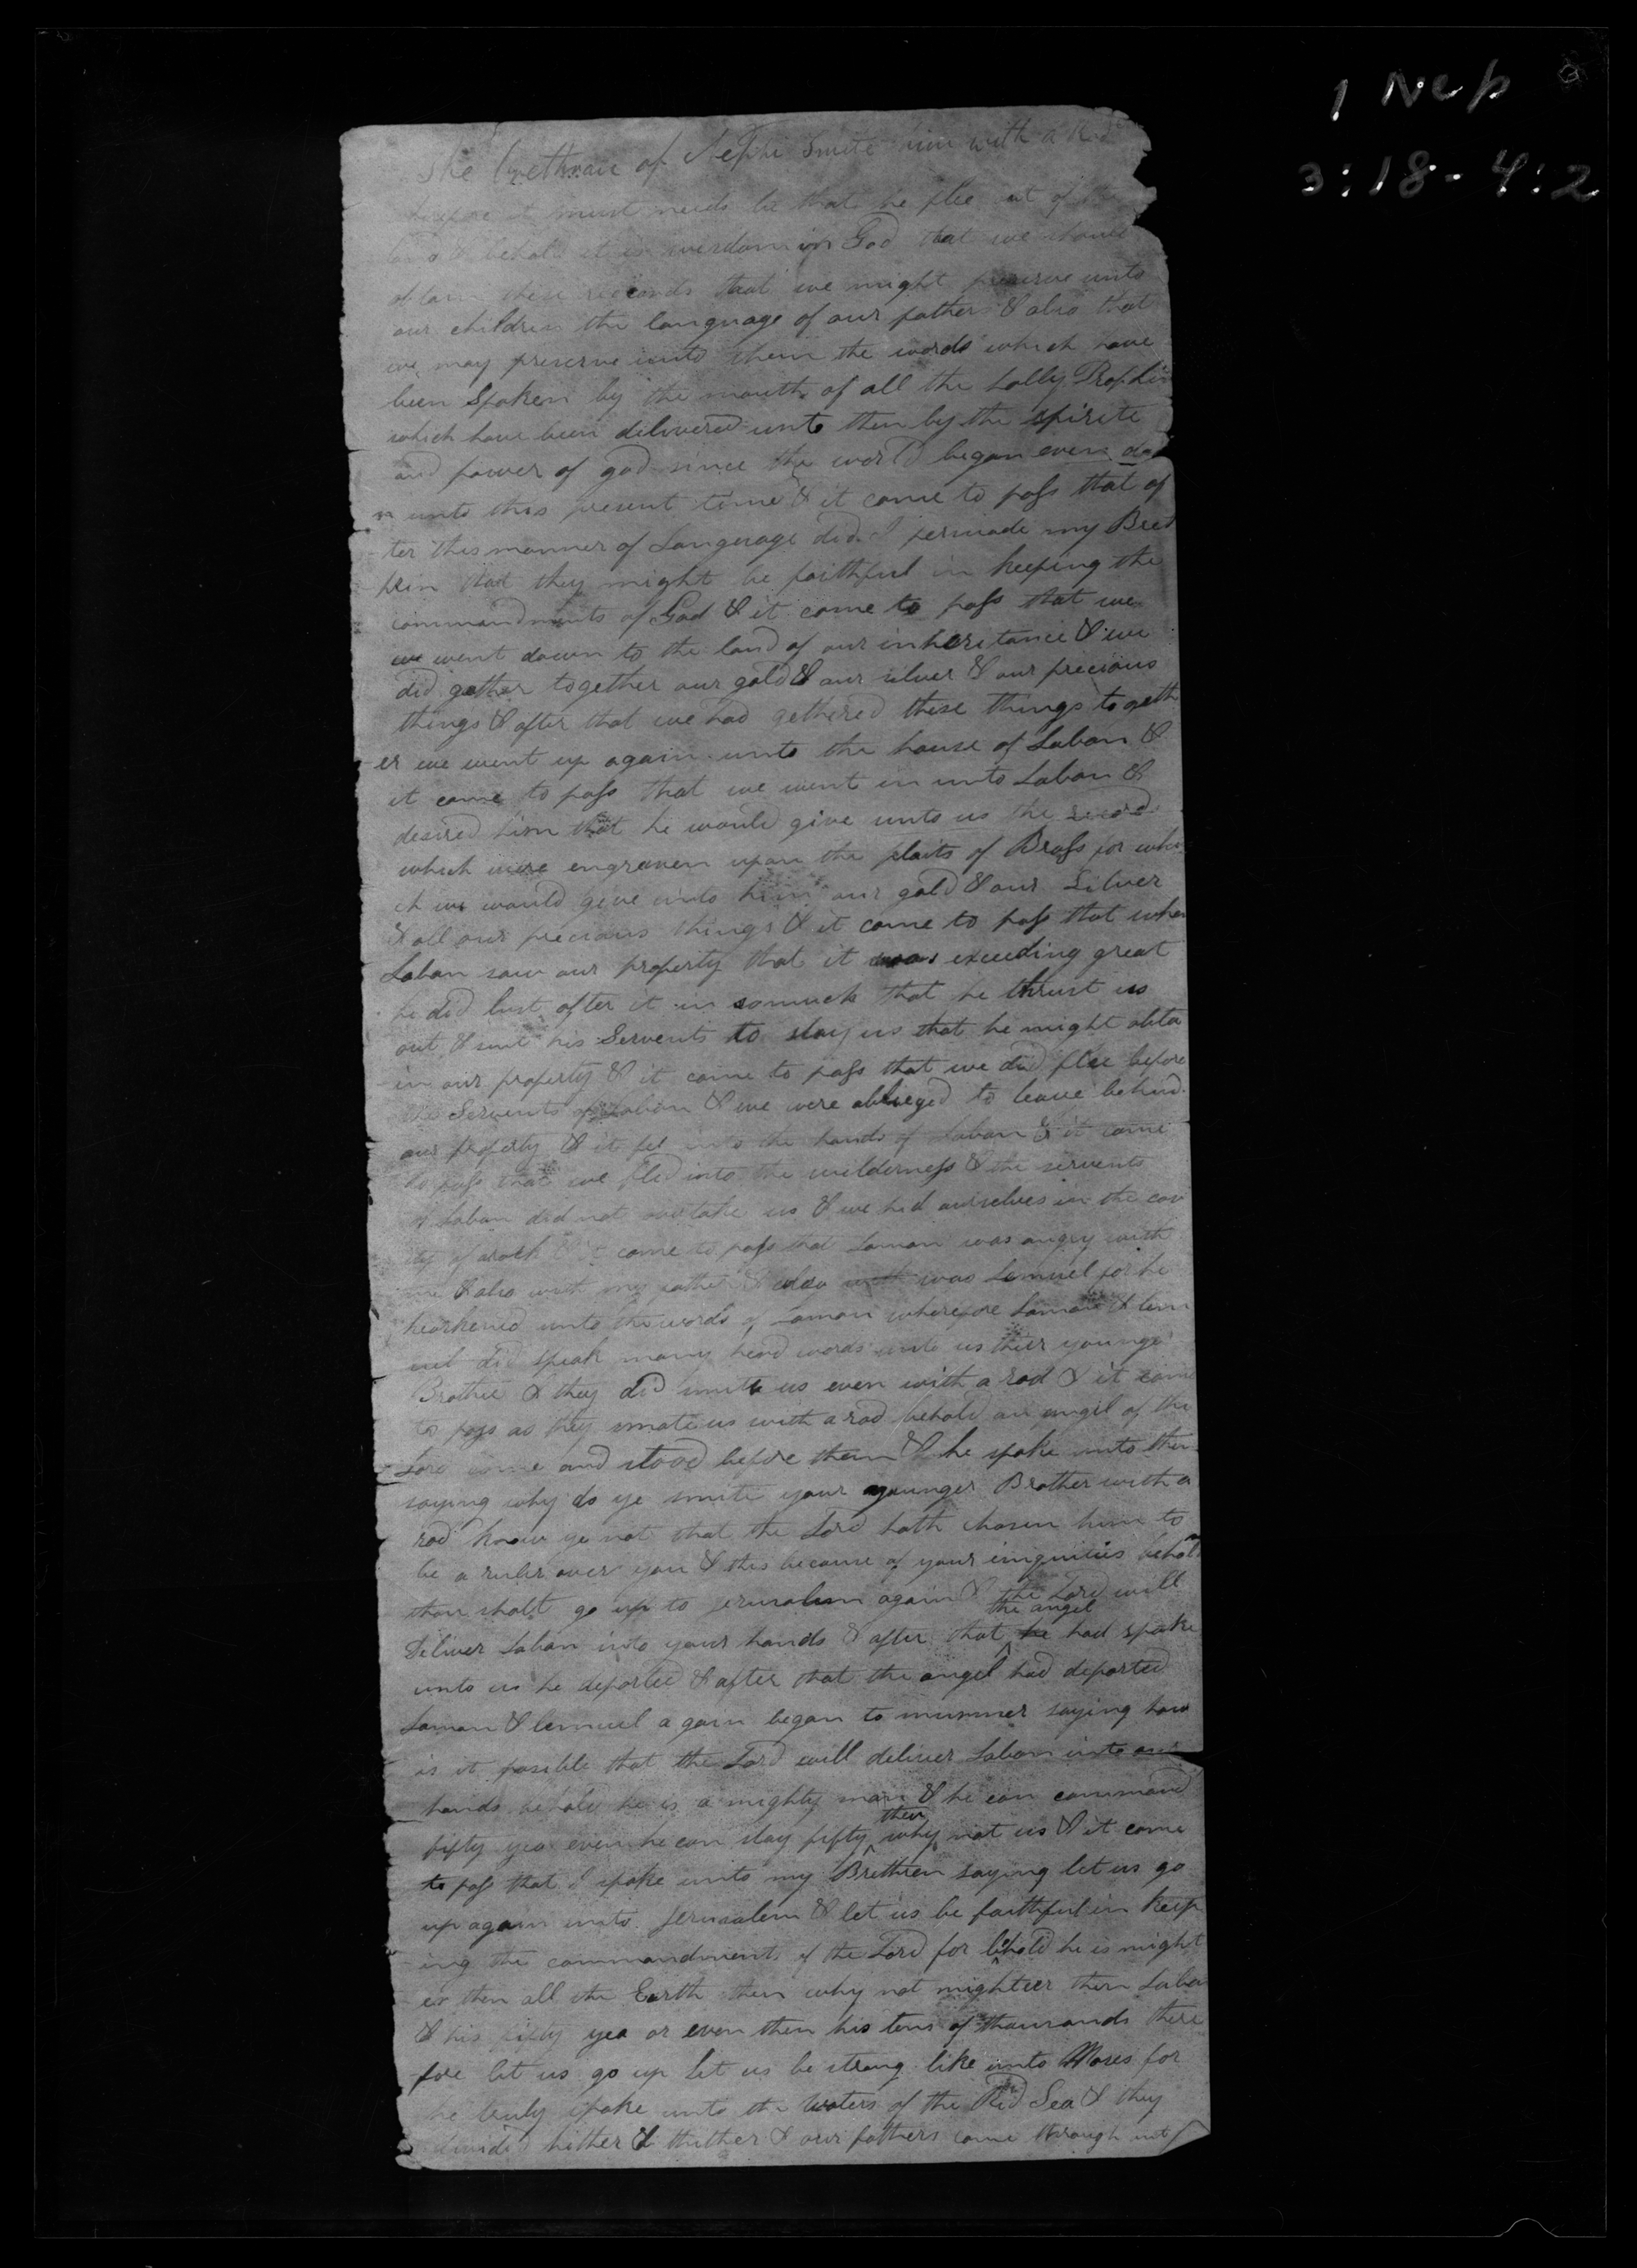 1 Nep
3:18-4:2
The brethren of Nephi Smite him with a Rod
it must needs be that he flee out of
land & behold it is wisdom in God that we should
obtain these reccords that we might preserve unto
our children the language of our fathers & also that
we may preserve unto them the words which have
been Spoken by the mouth of all the holly Prophets
which have been delivered unto them by the spirite
and power of god since the world began even dow
n unto this present time & it came to pass that af
ter this manner of Language did I perswade my Bret
hren that they might be faithful in keeping the
commandments of God & it came to pass that we
we went down to the land of our inheritance & we
did gather together our gold & our silver & our precious
things & after that we had gethered these things togeth
er we went up again unto the house of Laban &
it came to pass that we went in unto Laban &
desired him that he would give unto us the records
which were engraven upon the plaits of Brass for whi
ch we would give unto him our gold & our Silver
& all our precious things & it came to pass that when
Laban saw our property that it was exceeding great
he did lust after it in somuch that he thrust us
out & sent his Servents to slay us that he might obta
in our property & it came to pass that we did flee before
the Servents of Laban & we were oblieged to leave behind
our property & it fel into the hands of Laban & it came
to pass that we fled into the wilderness & the servents
of Laban did not overtake us & we hid ourselves in the cav
ity of a rock & it came to pass that Laman was angry with
me & also with my father & also with was Lemuel for he
hearkened unto the words of Laman wherefore Laman & Lem
uel did speak many hard words unto us their younger
Brother & they did smite us even with a rod & it came
to pass as they smote us with a rod behold an angel of the
Lord came and stood before them & he spake unto them
saying why do ye smite your younger Brother with a
rod know ye not that the Lord hath chosen him to
be a ruler over you & this because of your iniquities behold
thou shalt go up to Jerusalem again & the Lord will
the angel
deliver Laban into your hands & after that he had spake
unto us he departed & after that the angel had departed
Laman & lemuel again began to murmer saying how
is it posible that the Lord will deliver Laban into our
hands behold he is a mighty man & he can command
then
fifty yea even he can slay fifty why not us & it came
to pass that I spake unto my Brethren saying let us go
up again unto Jerusalem & let us be faithful in keep
ing the commandments of the Lord for behold he is might
er then all the Earth then why not mightier then Laban
& his fifty yea or even then his tens of thousands there
fore let us go up let us be strong like unto Moses for
he truly spake unto the waters of the Red Sea & they
divided hither & thither & our fathers came through out